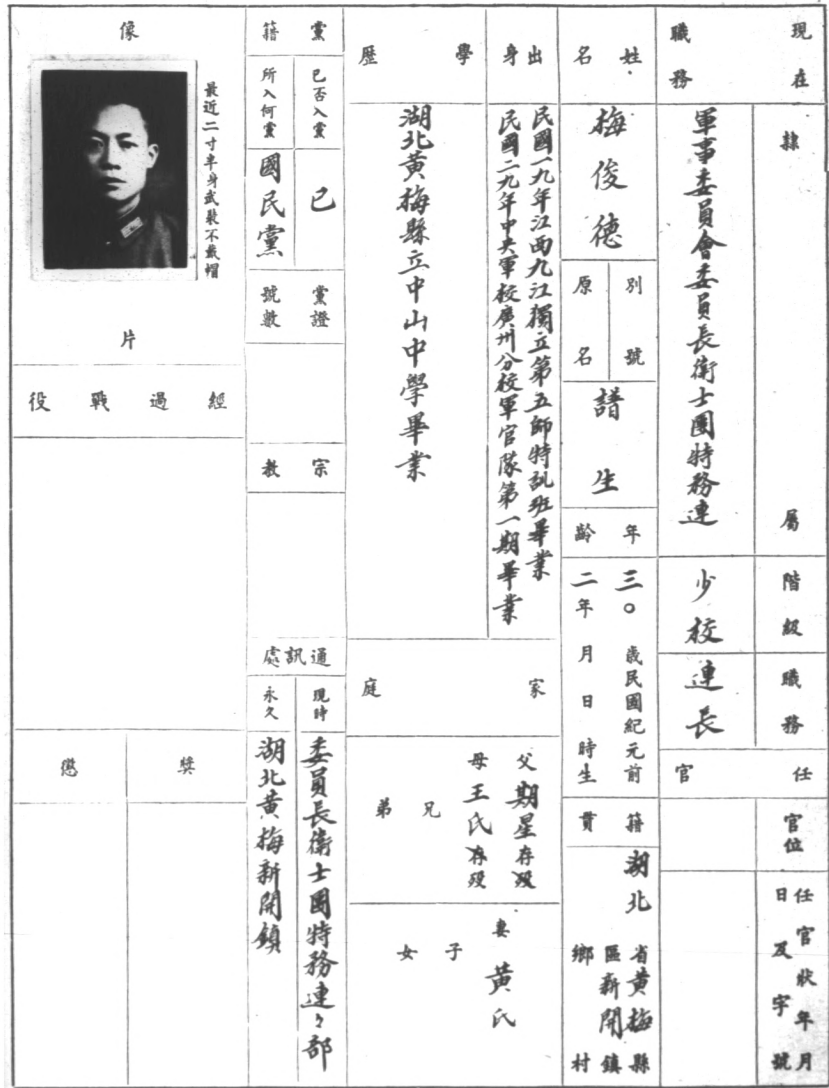 現在職務
隸屬
軍事委員會委員長衛士團特務連
階級
少校
職務
連長
任官
官位
任官狀年月日及字號
姓名
梅俊德
別號
原名
譜生
年齡
三〇歲民國紀元前
二年月日時生
籍貫
湖北省黃梅縣
區新開鎮
鄉村
出身
民國一九年江西九江獨立第五師特訓班畢業
民國二九年中央軍校廣州分校軍官隊第一期畢業
學歷
湖北黃梅縣立中山中學畢業
家庭
父期星存歿
母王氏存歿
兄
弟
妻黃氏
子
女
黨籍
已否入黨
已
所入何黨
國民黨
黨證號數
宗教
通訊處
現時
委員長衛士團特務連々部
永久
湖北黃梅新開鎮
像片
最近二寸半身武裝不戴帽
經過戰役
獎
懲